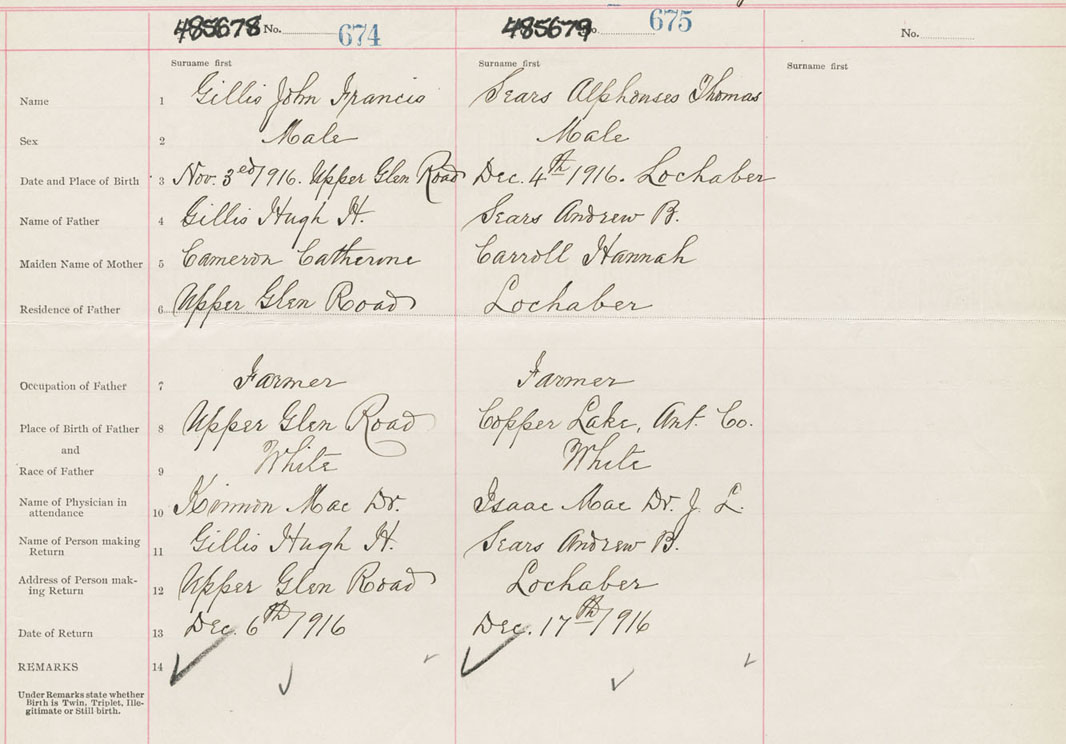 485678 No. 674 485679 No. 675 No.
Surname first Surname first Surname first
Name 1 Gillis John Francis Sears Alphonses Thomas
Sex 2 Male Male
Date and Place of Birth 3 Nov. 3ed/1916. Upper Glen Road Dec. 4th/1916. Lochaber
Name of Father 4 Gillis Hugh H. Sears Andrew B.
Maiden Name of Mother 5 Cameron Catherine Carroll Hannah
Residence of Father 6 Upper Glen Road Lochaber
Occupation of Father 7 Farmer Farmer
Place of Birth of Father 8 Upper Glen Road Copper Lake, Ant. Co.
and
Race of Father 9 White White
Name of Physician in
attendance 10 Kinnon Mac Dr. Isaac Mac Dr. J. L.
Name of Person making
Return 11 Gillis Hugh H. Sears Andrew B.
Address of Person mak-
ing Return 12 Upper Glen Road Lochaber
Date of Return 13 Dec. 6th/1916 Dec. 17th/1916
REMARKS 14
Under Remarks state whether
Birth is Twin, Triplet, Ille-
gitimate or Still birth.